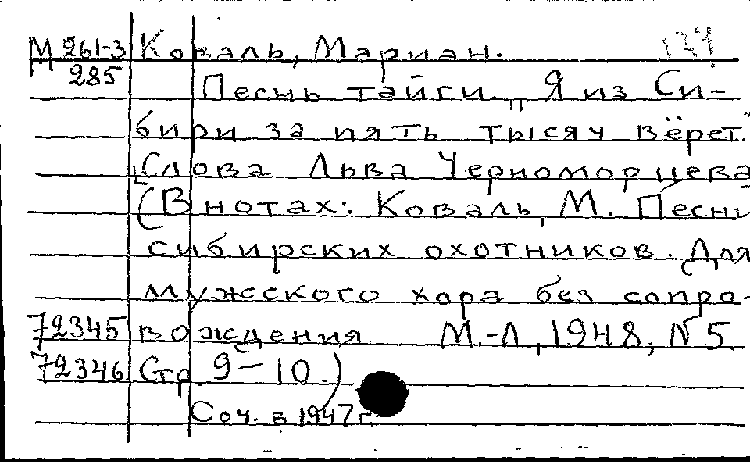 М 261-3 Коваль, Мариан.
285 Песнь тайги. "Я из Си-
бири за пять тысяч вёрст."
Слова Льва Черноморцева
(В нотах: Коваль, М. Песни
сибирских охотников. Для
мужского хора без сопро-
72345 вождения М.-Л., 1948, № 5
72346 Стр. 9-10.)
Соч. в 1947 г.